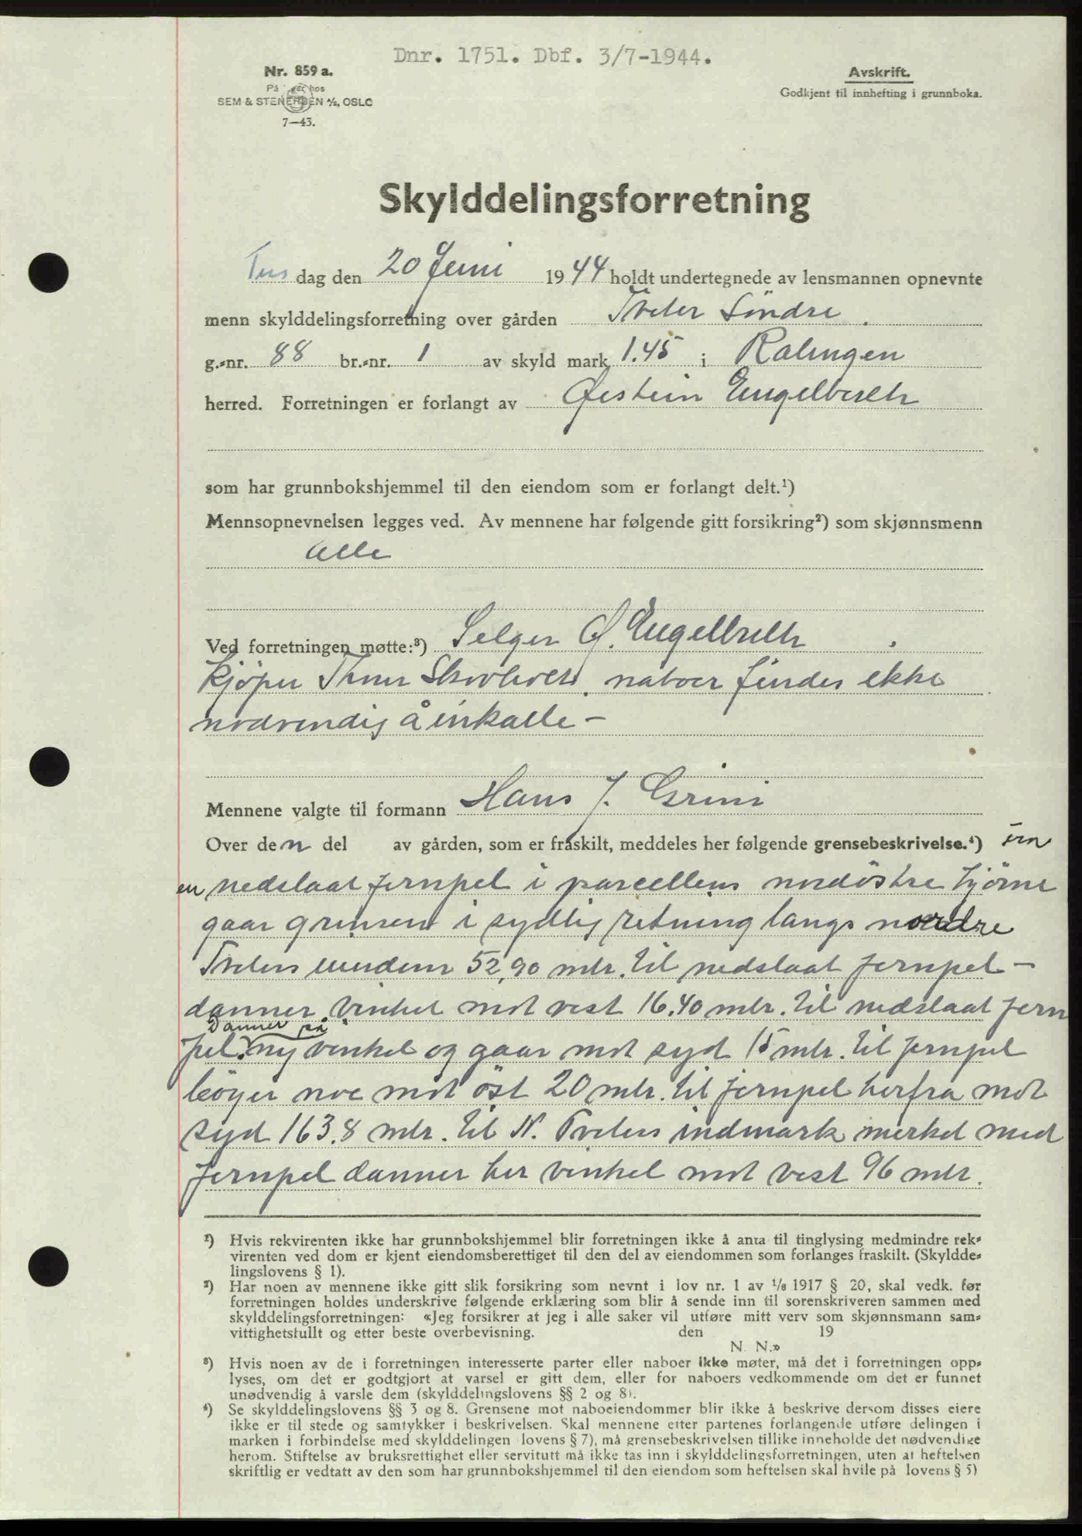 Dnr. 1751. Dbf. 3/7-1944.
Nr. 859 a.
På lager hos
SEM & STENERSEN A/S, OSLO
7—43.
Avskrift.
Godkjent til innhefting i grunnboka.
Skylddelingsforretning
Tirsdag den 20 Juni 1944 holdt undertegnede av lensmannen opnevnte
menn skylddelingsforretning over gården Tveter Søndre.
g.-nr. 88 br.-nr. 1 av skyld mark 1.45 i Ralingen
herred. Forretningen er forlangt av Øistein Engelbreth
som har grunnbokshjemmel til den eiendom som er forlangt delt.¹)
Mennsopnevnelsen legges ved. Av mennene har følgende gitt forsikring²) som skjønnsmenn
Alle
Ved forretningen møtte:³) Selger Ø. Engelbreth
kjøper naboer findes ikke
nødvendig å inkalle –
Mennene valgte til formann Hans J. Grini
Over den del av gården, som er fraskilt, meddeles her følgende grensebeskrivelse.⁴) Fra
en nedslaat jernpel i parcellens nordöstre hjörne
gaar grensen i sydlig retning langs nordre
Tveters eiendom 52,90 mtr. til nedslaat jernpel –
danner vinkel mot vest 16.40 mtr. til nedslaat jern
pel. danner på ny vinkel og gaar mot syd 15 mtr. til jernpel
böyer noe mot öst 20 mtr. til jernpel herfra mot
syd 163,8 mtr. til N. Tveters indmark merket med
jernpel danner her vinkel mot vest 96 mtr.
¹) Hvis rekvirenten ikke har grunnbokshjemmel blir forretningen ikke å anta til tinglysing medmindre rek-
virenten ved dom er kjent eiendomsberettiget til den del av eiendommen som forlanges fraskilt. (Skyldde-
lingslovens § 1).
²) Har noen av mennene ikke gitt slik forsikring som nevnt i lov nr. 1 av 1/6 1917 § 20, skal vedk. før
forretningen holdes underskrive følgende erklæring som blir å sende inn til sorenskriveren sammen med
skylddelingsforretningen: «Jeg forsikrer at jeg i alle saker vil utføre mitt verv som skjønnsmann sam-
vittighetsfullt og etter beste overbevisning. den 19
N. N.»
³) Hvis noen av de i forretningen interesserte parter eller naboer ikke møter, må det i forretningen opp-
lyses, om det er godtgjort at varsel er gitt dem, eller for naboers vedkommende om det er funnet
unødvendig å varsle dem (skylddelingslovens §§ 2 og 8).
⁴) Se skylddelingslovens §§ 3 og 8. Grensene mot naboeiendommer blir ikke å beskrive dersom disses eiere
ikke er til stede og samtykker i beskrivelsen. Skal mennene etter partenes forlangende utføre delingen i
marken i forbindelse med skylddelingen lovens § 7), må grensebeskrivelsen tillike inneholde det nødvendige
herom. Stiftelse av bruksrettighet eller servitutt må ikke tas inn i skylddelingsforretningen, uten at heftelsen
skriftlig er vedtatt av den som har grunnbokshjemmel til den eiendom som heftelsen skal hvile på lovens § 5)